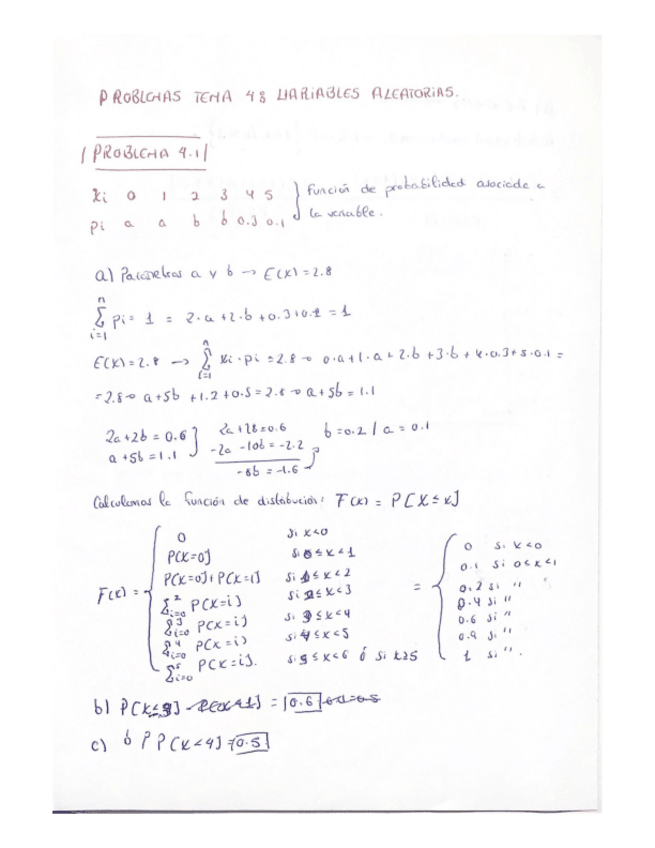 PROBLEMAS TEMA 4: VARIABLES ALEATORIAS.
PROBLEMA 4.1
xi 0 1 2 3 4 5 } función de probabilidad asociada a
pi a a b b 0.3 0.1 la variable.
a) Parametros a y b → E(X)=2.8
n
Σ pi = 1 = 2·a+2·b+0.3+0.1 = 1
i=1
E(X)=2.8 → Σ xi·pi = 2.8 → 0·a+1·a+2·b+3·b+4·0.3+5·0.1 =
= 2.8 → a+5b+1.2+0.5=2.8 → a+5b=1.1
2a+2b=0.6 } 2a+2b=0.6 b=0.2 / a=0.1
a+5b=1.1 -2a-10b=-2.2
-8b=-1.6
Calculamos la función de distribución: F(x) = P[X≤x]
F(x) = {
0 si x<0
P[X=0] si 0≤x<1
P[X=0]+P[X=1] si 1≤x<2
Σ²i=0 P[X=i] si 2≤x<3
Σ³i=0 P[X=i] si 3≤x<4
Σ⁴i=0 P[X=i] si 4≤x<5
Σ⁵i=0 P[X=i]. si 5≤x<6 ó si x≥5
= {
0 si x<0
0.1 si 0≤x<1
0.2 si "
0.4 si "
0.6 si "
0.9 si "
1 si ".
b) P[X≤3] = 0.6
c) P[X<4] = 0.5